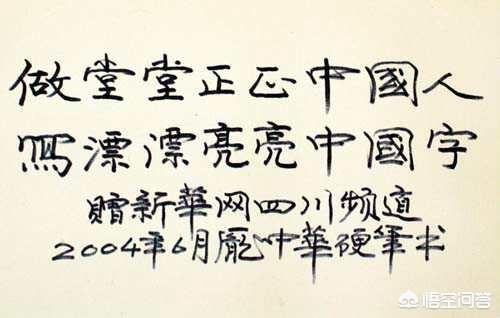 做堂堂正正中國人
寫漂漂亮亮中國字
贈新華网四川频道
2004年6月龐中華硬筆书
悟空问答